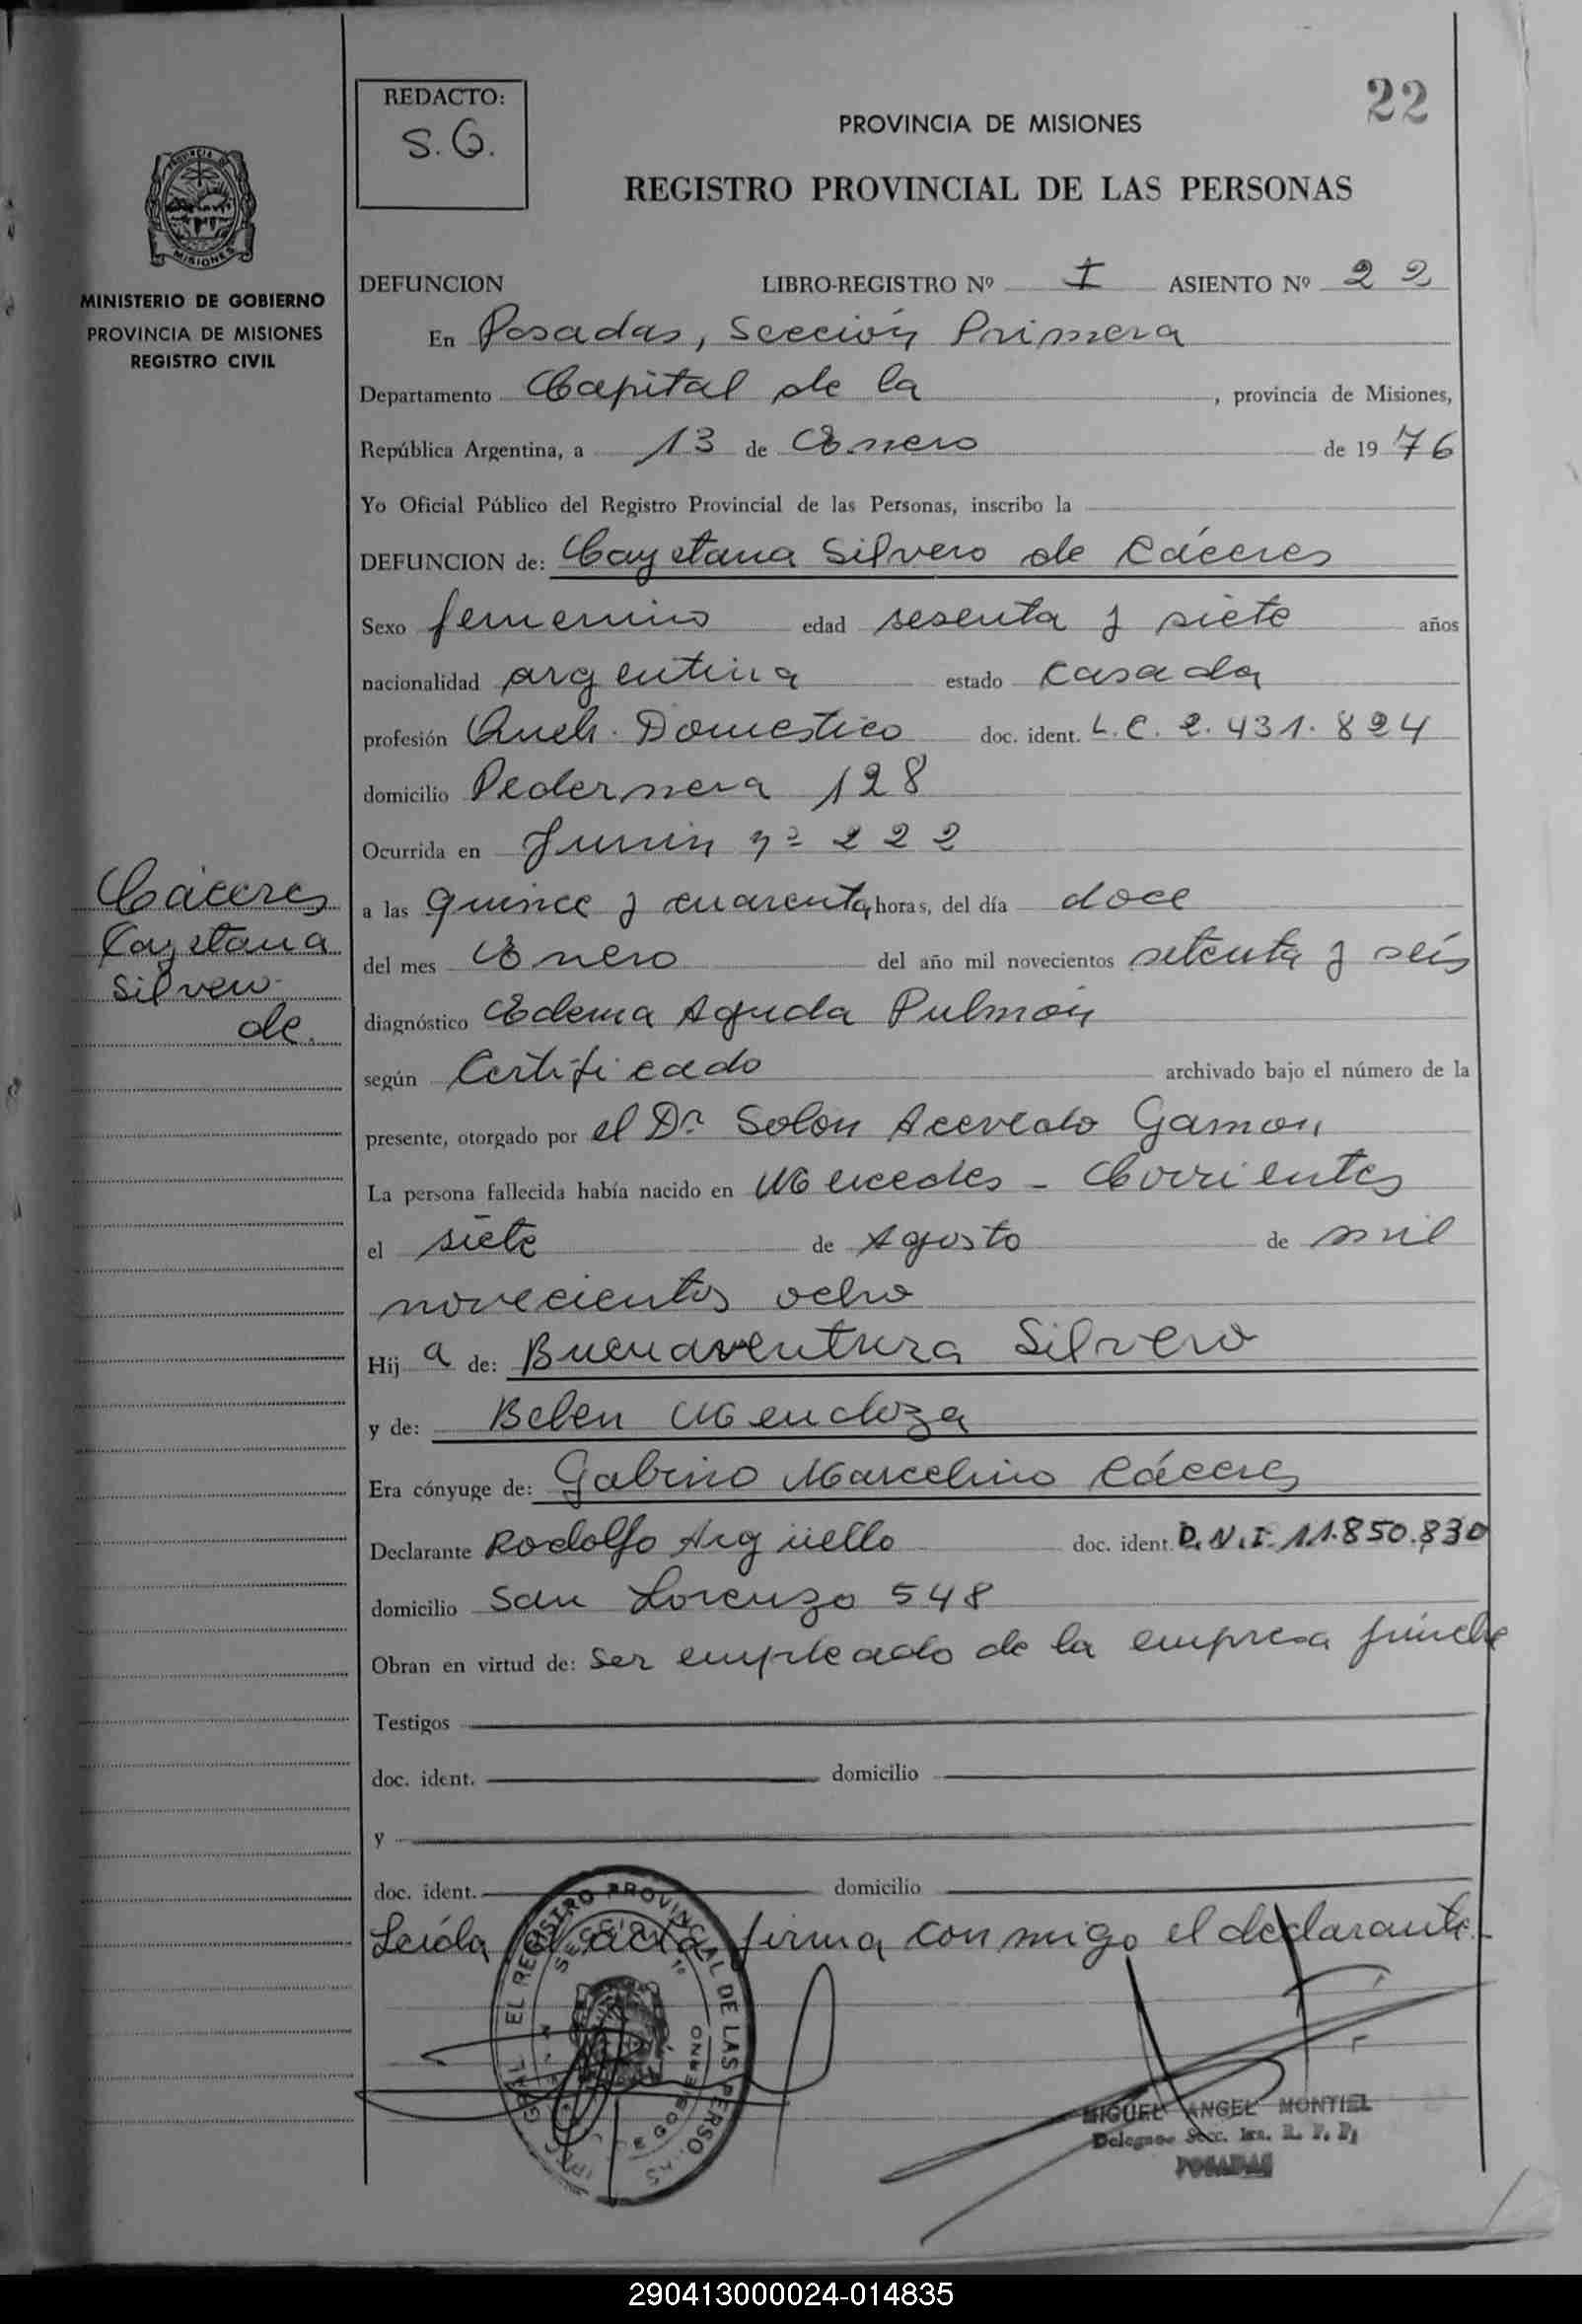 22
REDACTO:
S.G.
PROVINCIA DE MISIONES
REGISTRO PROVINCIAL DE LAS PERSONAS
MISIONES
MINISTERIO DE GOBIERNO
PROVINCIA DE MISIONES
REGISTRO CIVIL
DEFUNCION LIBRO-REGISTRO Nº I ASIENTO Nº 22
En Posadas, Sección Primera
Departamento Capital de la , provincia de Misiones,
República Argentina, a 13 de Enero de 1976
Yo Oficial Público del Registro Provincial de las Personas, inscribo la
DEFUNCION de: Cayetana Silvero de Cáceres
Sexo femenino edad sesenta y siete años
nacionalidad argentina estado casada
profesión Queh. Domestico doc. ident. L.C. 2.431.824
domicilio Pedernera 128
Ocurrida en Junin nº 222
a las quince y cuarenta horas, del día doce
del mes Enero del año mil novecientos setenta y seis
diagnóstico Edema Aguda Pulmón
según Certificado archivado bajo el número de la
presente, otorgado por el Dr. Solon Acevedo Gamon
La persona fallecida había nacido en Mercedes - Corrientes
el siete de Agosto de mil
novecientos ocho
Hija de: Buenaventura Silvero
y de: Belen Mendoza
Era cónyuge de: Gabino Marcelino Cáceres
Declarante Rodolfo Argüello doc. ident. D.N.I. 11.850.830
domicilio San Lorenzo 548
Obran en virtud de: ser empleado de la empresa fúnebre
Testigos
doc. ident. domicilio
y
doc. ident. domicilio
Leída el acta, firma conmigo el declarante.-
Cáceres
Cayetana
Silvero
de.
MIGUEL ANGEL MONTIEL
Delegado Secc. 1ra. R. P. P.
POSADAS
290413000024-014835